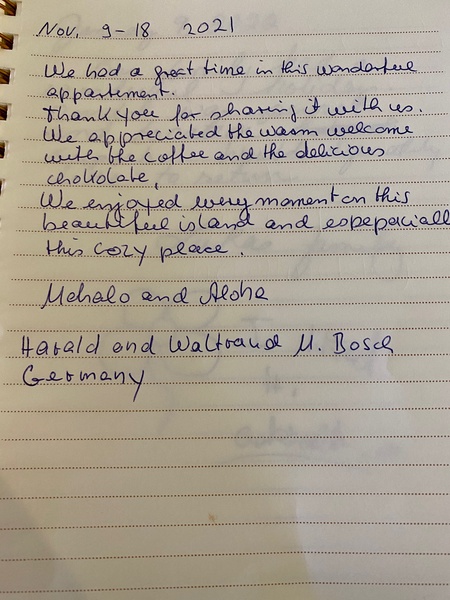 Nov. 9-18 2021
We had a great time in this wonderful
appartement.
Thank you for sharing it with us.
We appreciated the warm welcome
with the coffee and the delicious
chokolate,
We enjoyed every moment on this
beautiful island and espepaciall
this cozy place.
Mehalo and Aloha
Harald and Waltraud M. Bosch
Germany